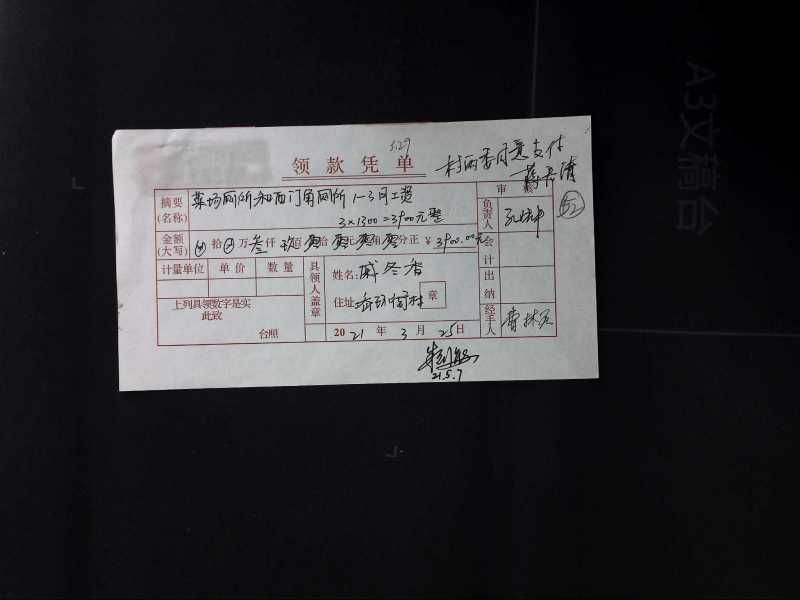 3.29
领款凭单
村两委同意支付
摘要
(名称)
菜场厕所和西门角厕所1-3月工资
3×1300=3900元整
审核
52
负责人
金额
(大写)
⊗拾⊗万叁仟玖佰零拾零元零角零分正 ¥ 3900.00元
会计
计量单位 单价 数量
具领人盖章
姓名: 戚冬香
住址:
村
章
出纳
上列具领数字是实
此致
台照
2021年3月25日
经手人
21.5.7
A3文稿台